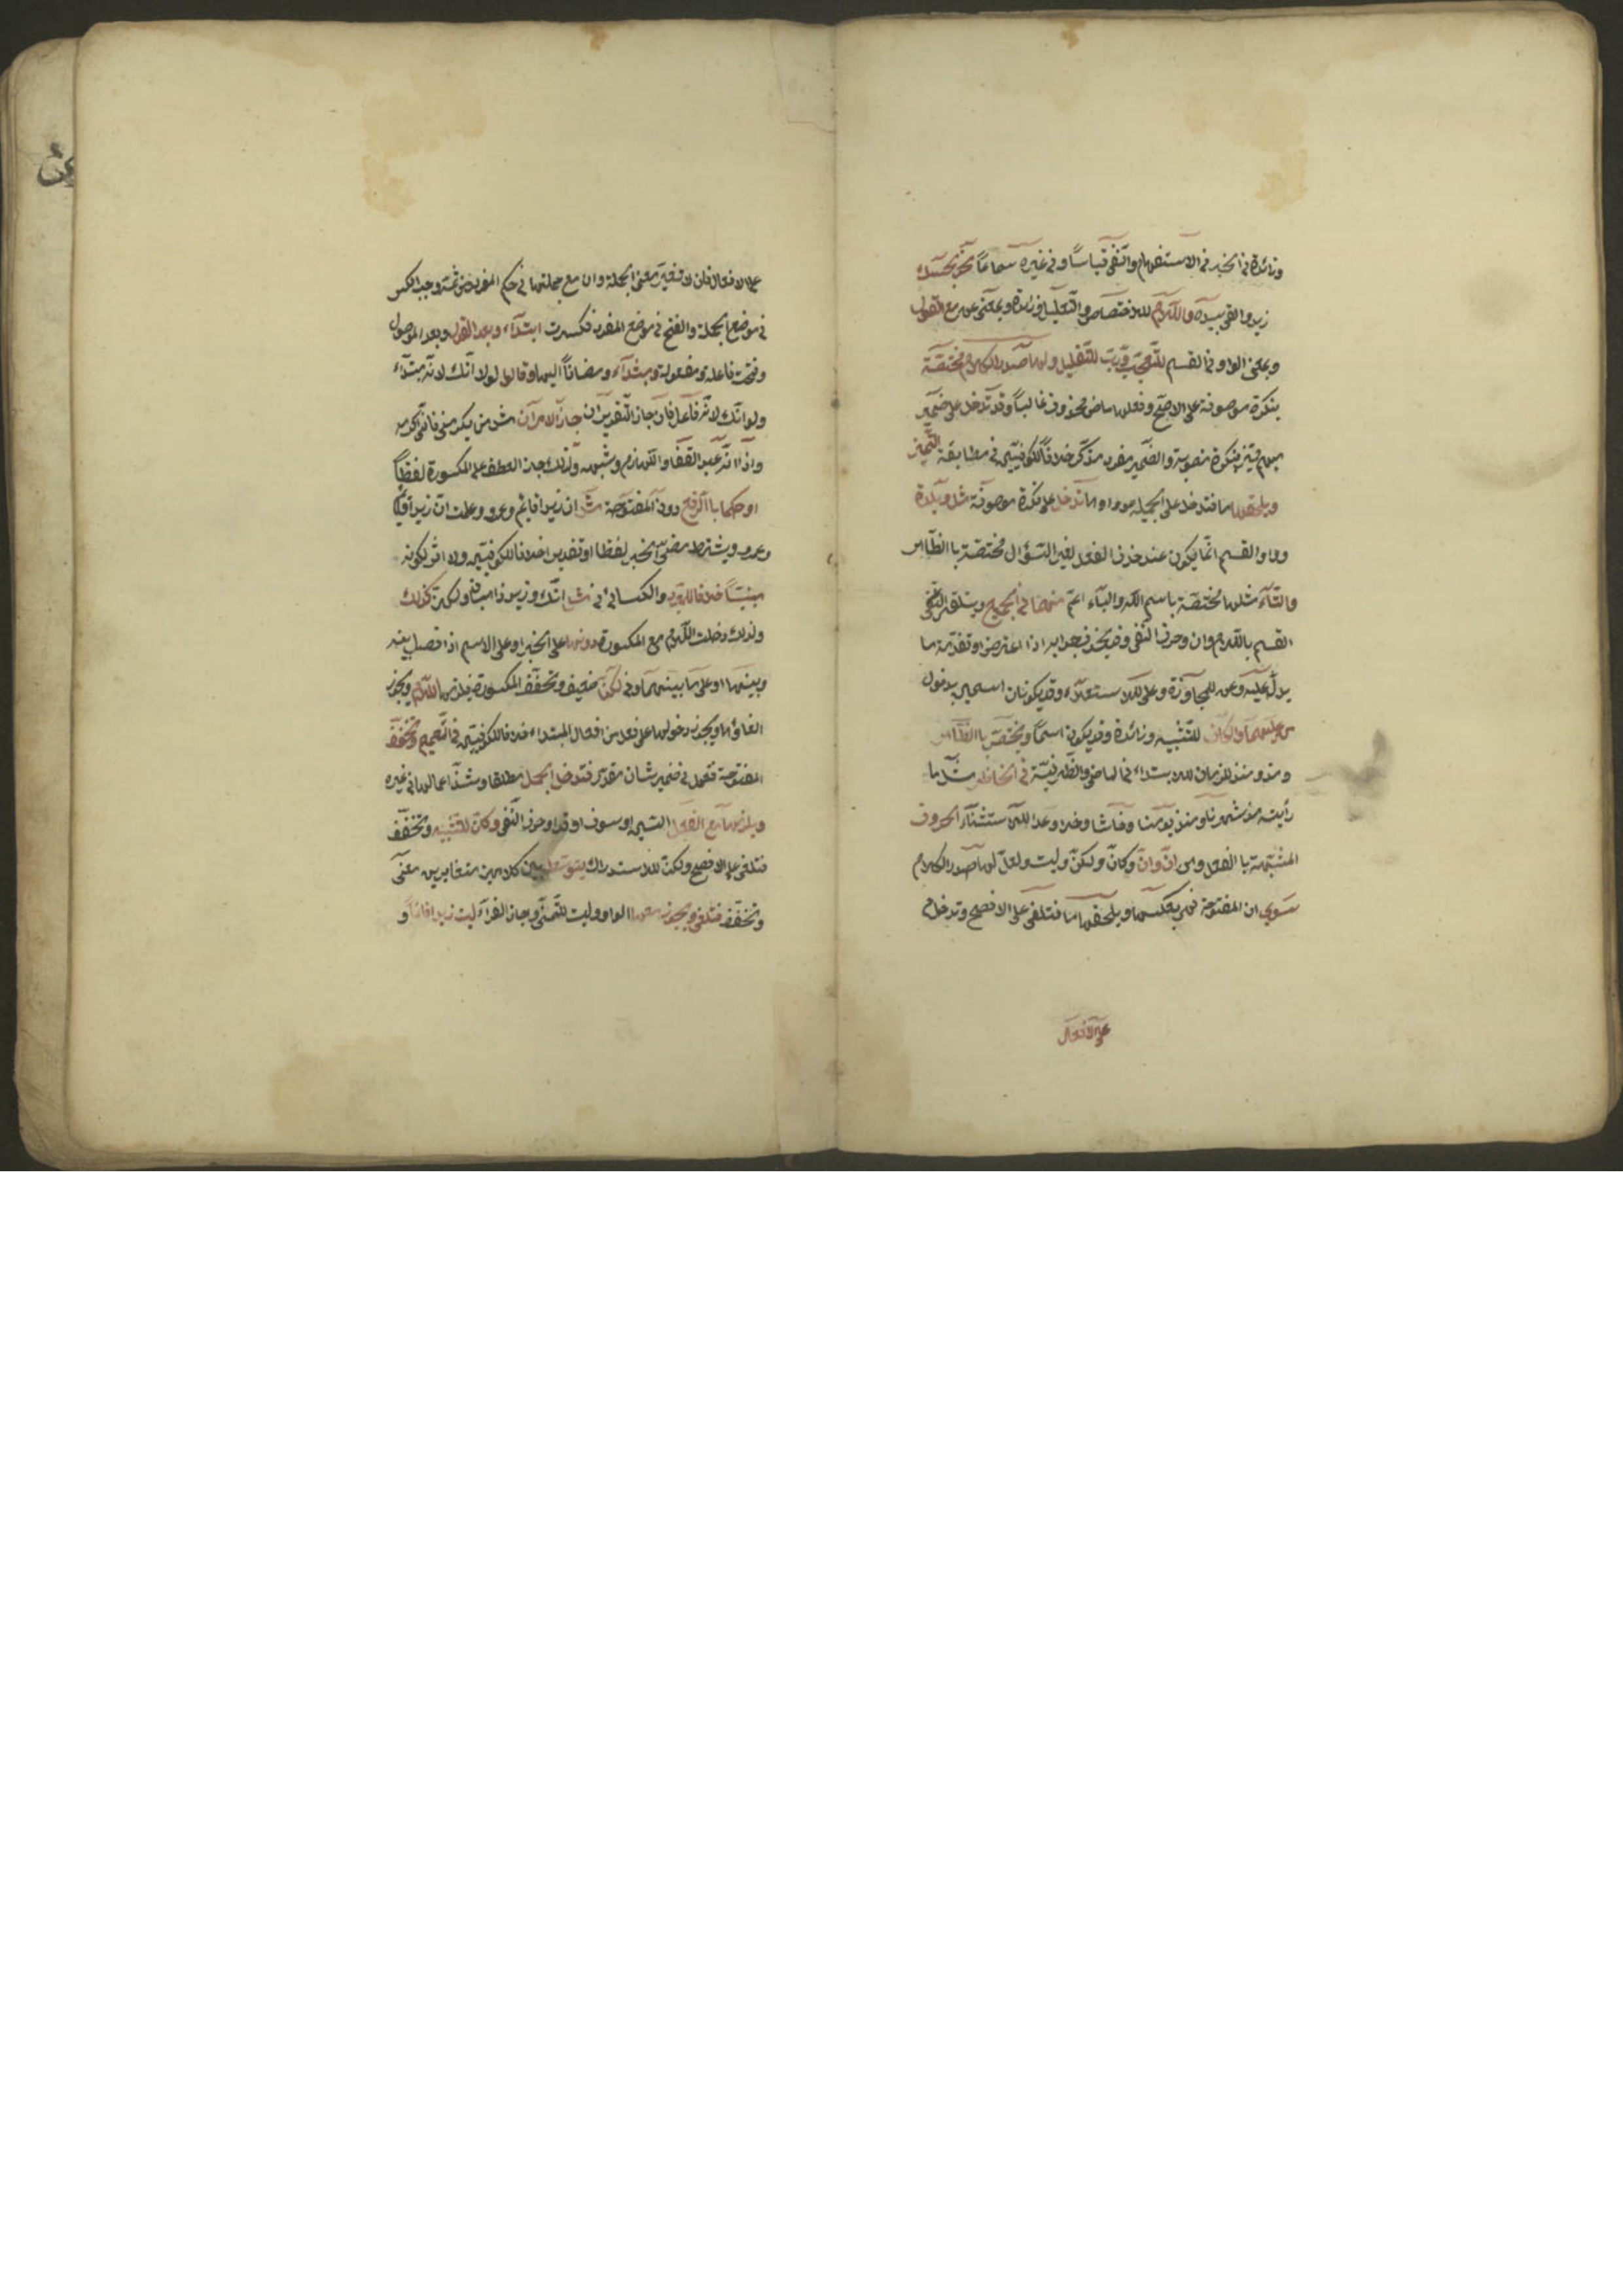 وزائدة في الخبر في الاستفهام والنفي قياسًا وفي غيره سماعًا نحو بحسبك
زيد والقى بيده واللام للاختصاص والتعليل وزائدة وبمعنى عن مع القول
وبمعنى الواو في القسم للتعجب وربّ للتقليل ولها صدر الكلام مختصّة
بنكرة موصوفة على الاصحّ وفعلها ماض محذوف غالبًا وقد تدخل على ضمير
مبهم مميّز بنكرة منصوبة والضمير مفرد مذكّر خلافًا للكوفيّين في مطابقة التّميز
ويلحقها ما فتدخل على الجملة وواوها تدخل على نكرة موصوفة مثل وبلدة
وواو القسم انّما يكون عند حذف الفعل لغير السّؤال مختصّة باالظّاهر
والتّآء مثلها مختصّة باسم الله والبآء اعمّ منهما في الجميع ويتلقى
القسم باللام وان وحرف النّفي وقد يحذف جوابه اذا اعترض او تقدّمه ما
يدلّ عليه وعن للمجاوزة وعلى للاستعلاء وقد يكونان اسمين بدخول
من عليهما والكاف للتّشبيه وزائدة وقد يكون اسمًا ويختصّ باالظّاهر
ومذ ومنذ للزمان للابتداء في الماضى والظّرفيّة في الحاضر مثل ما
رأيته مذ شهرنا ومنذ يومنا وحاشا وخلا وعدا للاستثنآء الحروف
المشبّهة باالفعل وهى انّ وانّ وكانّ ولكنّ وليت ولعلّ لها صدر الكلام
سوى ان المفتوحة فهى بعكسها ويلحقها ما فتلغى على الافصح وتدخل ح
على الافعال
على الافعال فان لا تغيّر معنى الجملة وان مع جملتها في حكم المفرد ومن ثمّة وجب الكسر
في موضع الجملة والفتح في موضع المفرد فكسرت ابتدآء وبعد القول وبعد الموصول
وفتحت فاعلة ومفعولة ومبتدآء ومضافًا اليها وقالوا لولا انّك لانّه مبتدآء
ولو انّك لانّه فاعل فان جاز التّقديران جاز الامران مثل من يكرمنى فانّى اكرمه
واذا انّه عبد القفا واللهازم وشبهه ولذلك جاز العطف على المكسورة لفظًا
او حكما باالرّفع دون المفتوحة مثل ان زيدا قايم وعمرو وعلمت انّ زيدا قايم
وعمرو ويشترط مضىّ الخبر لفظا او تقديرا خلافا للكوفيّين ولا اثر لكونه
مبنيّاً خلافا للمبرد والكسائى في مثل انّك وزيد ذاهبان ولكنّ كذلك
ولذلك دخلت اللّام مع المكسورة دونها على الخبر او على الاسم اذا فصل بينه
وبينها او على ما بينهما وفى لكنّ ضعيف وتخفّف المكسورة فيلزمها اللّام ويجوز
الغاؤها ويجوز دخولها على فعل من افعال المبتداء خلافا للكوفيّين فى التّعميم وتخفّف
المفتوحة فتعمل فى ضمير شان مقدّر فتدخل الجمل مطلقا وشذّ اعمالها في غيره
ويلزمها مع الفعل السّين او سوف او قد او حرف النّفى وكانّ للتّشبيه وتخفّف
فتلغى على الافصح ولكنّ للاستدراك يتوسّط بين كلامين متغايرين معنًى
وتخفّف فتلغى ويجوز معها الواو وليت للتّمنّى وجاز الفرّآء ليت زيدا قائمًا و